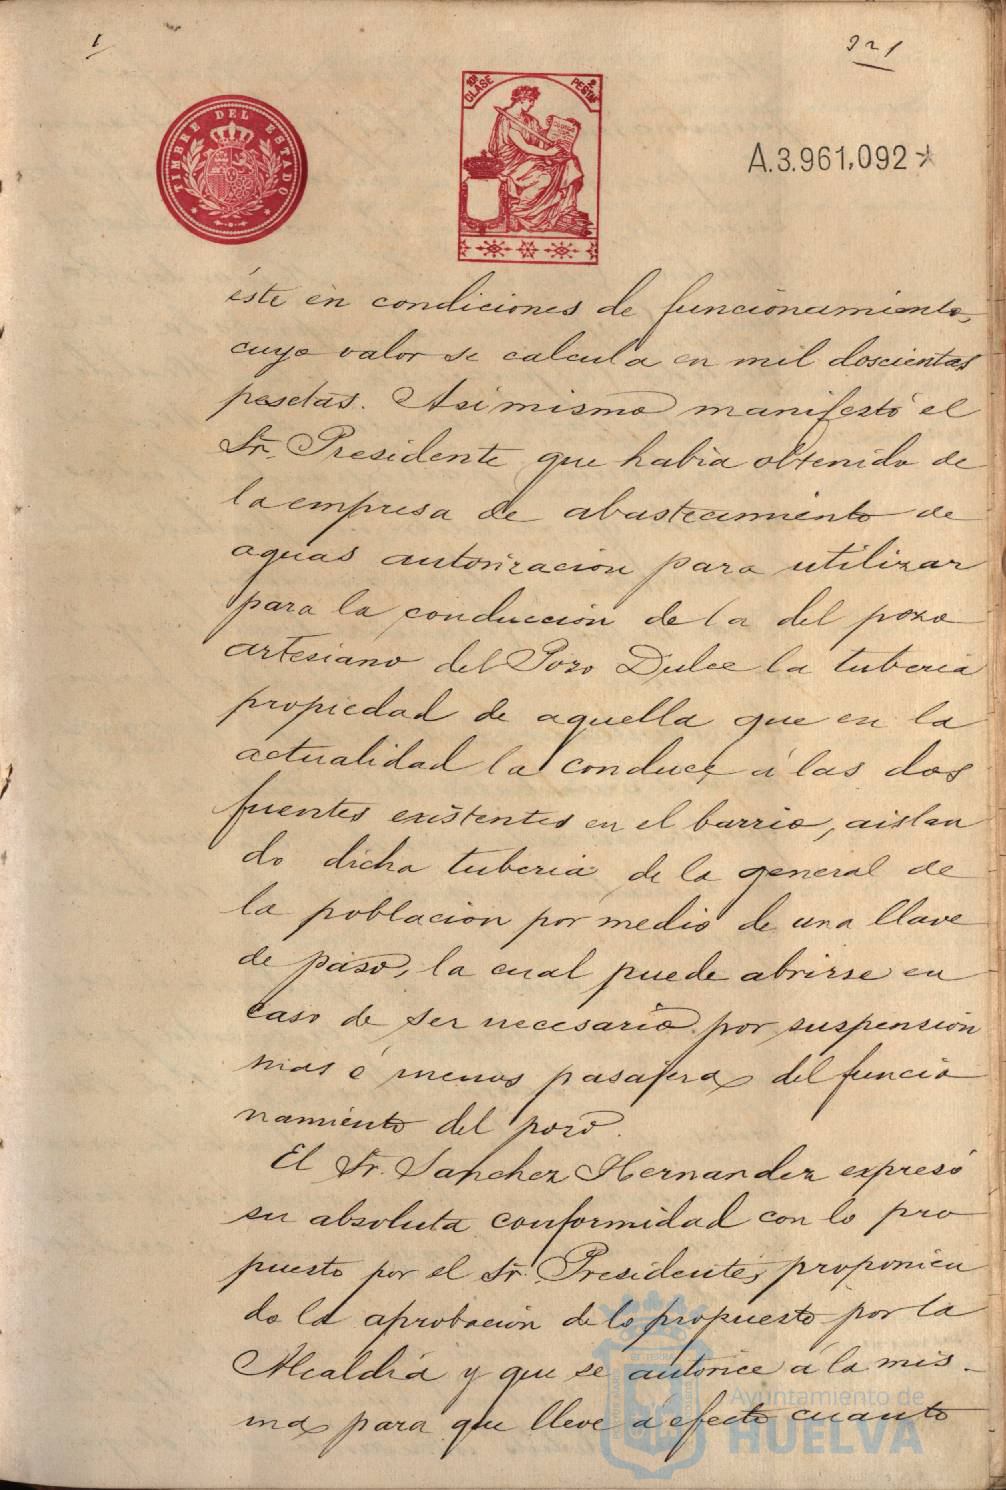 1
321
TIMBRE DEL ESTADO
10ª CLASE
2 PESTAS
A.3.961,092*
éste en condiciones de funcionamiento,
cuyo valor se calcula en mil doscientas
pesetas. Asimismo manifestó el
Sr. Presidente que había obtenido de
la empresa de abastecimiento de
aguas autorizacion para utilizar
para la conducción de la del pozo
artesiano del Pozo Dulce la tuberia
propiedad de aquella que en la
actualidad la conduce á las dos
fuentes existentes en el barrio, aislan
do dicha tuberia de la general de
la poblacion por medio de una llave
de paso, la cual puede abrirse en
caso de ser necesario por suspensión
mas ó menos pasajera del funcio
namiento del pozo.
El Sr. Sanchez Hernandez expresó
su absoluta conformidad con lo pro
puesto por el Sr. Presidente, proponien
do la aprobacion de lo propuesto por la
Alcaldía y que se autorice á la mis-
ma para que lleve a efecto cuanto
Ayuntamiento de
HUELVA